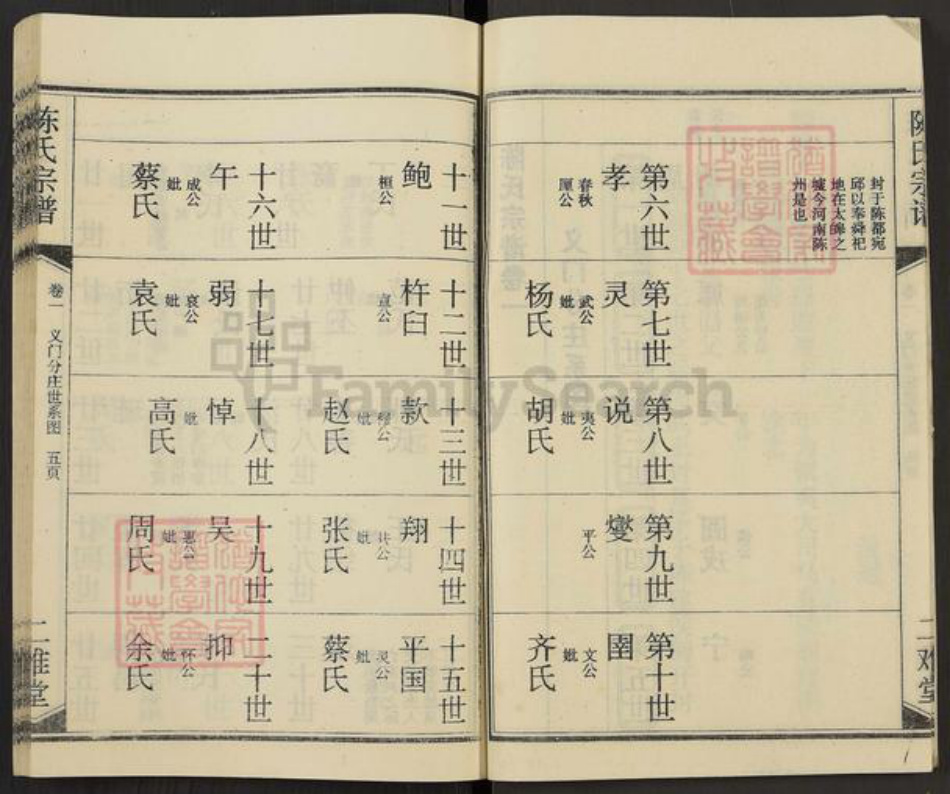 陈氏宗谱
封于陈都宛
邱以奉舜祀
地在太皞之
墟今河南陈
州是也
第六世
孝
春秋
厘公
第七世
灵
武公
妣
杨氏
第八世
说
夷公
妣
胡氏
第九世
燮
平公
第十世
圉
文公
妣
齐氏
二难堂
十一世
鲍
桓公
十二世
杵臼
宣公
十三世
款
穆公
妣
赵氏
十四世
翔
共公
妣
张氏
十五世
平国
灵公
妣
蔡氏
十六世
午
成公
妣
蔡氏
十七世
弱
哀公
妣
袁氏
十八世
悼
妣
高氏
十九世
吴
惠公
妣
周氏
二十世
抑
怀公
妣
余氏
陈氏宗谱
卷一
义门分庄世系图
五页
二难堂
FamilySearch